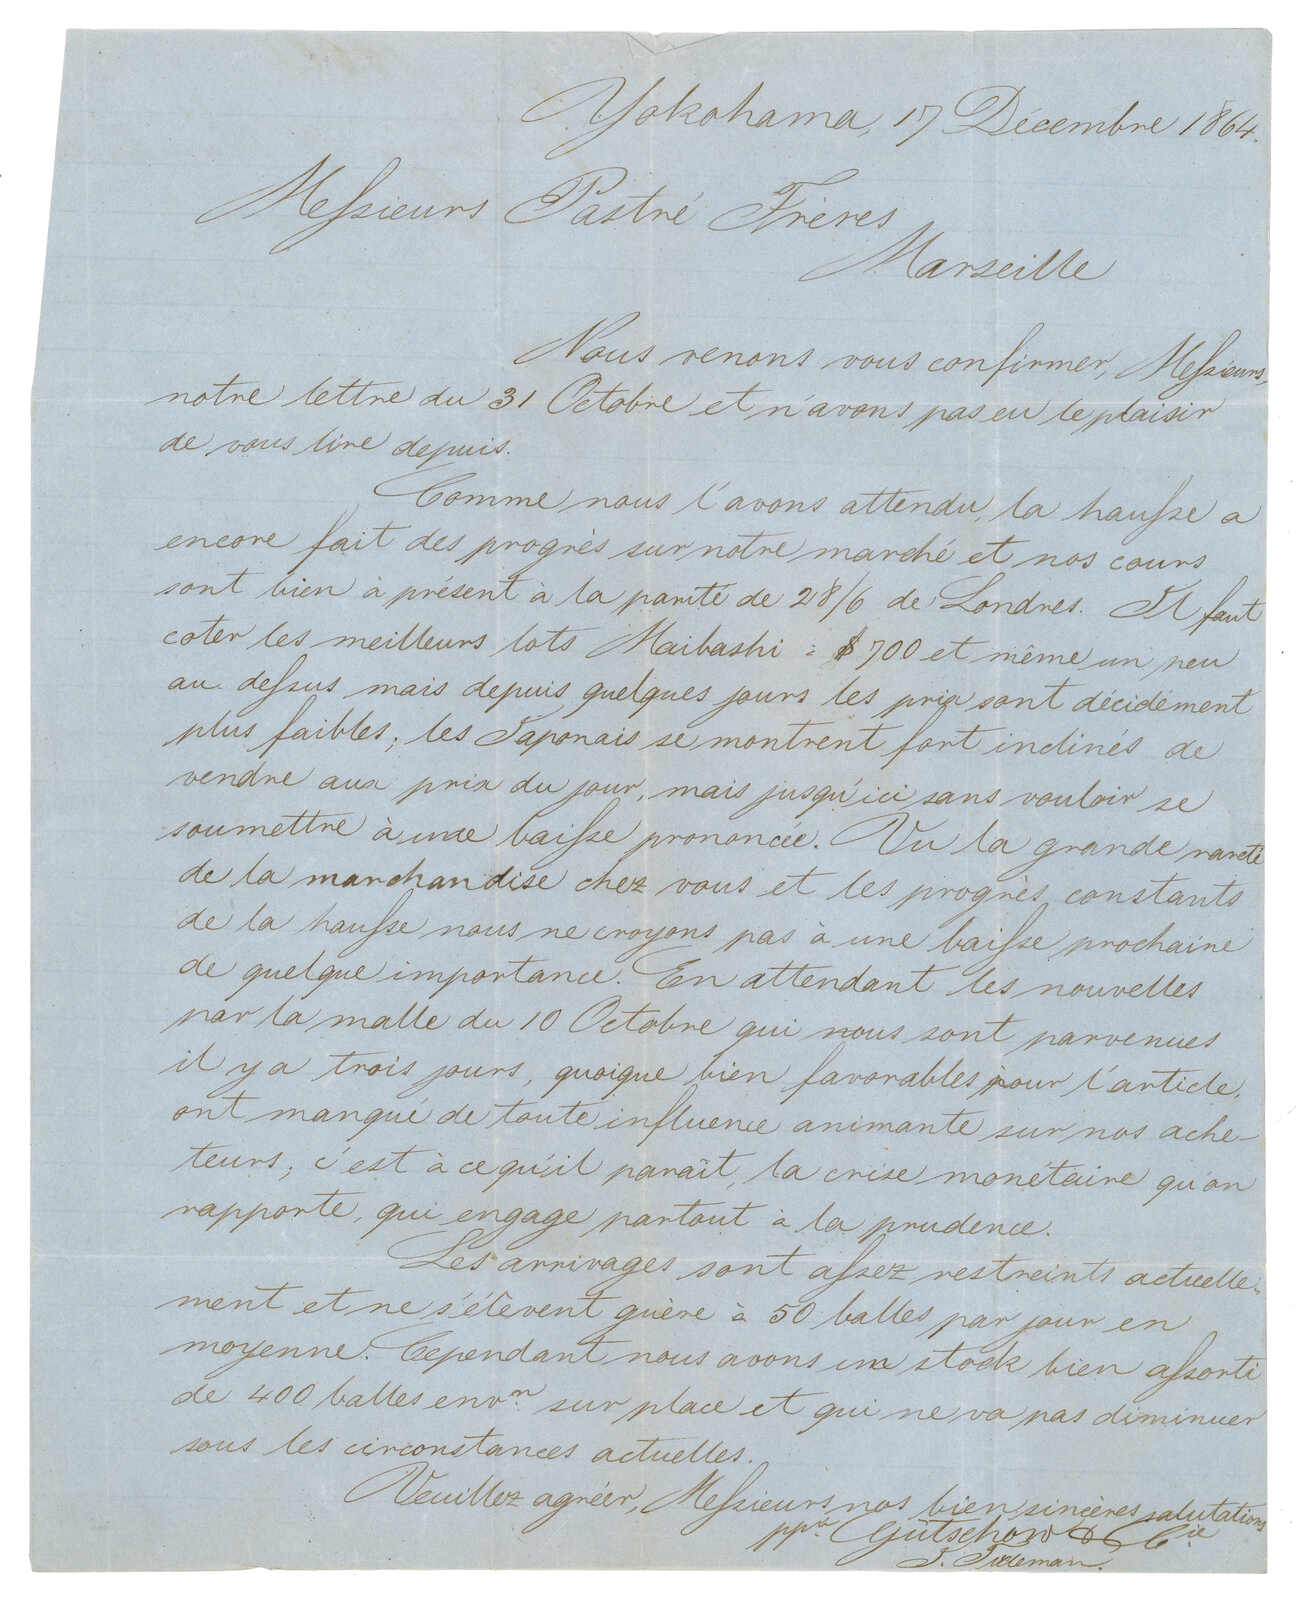 Yokohama, 17 Décembre 1864.
Messieurs Pastré Frères
Marseille
Nous venons vous confirmer, Messieurs,
notre lettre du 31 Octobre et n'avons pas eu le plaisir
de vous lire depuis.
Comme nous l'avons attendu, la hausse a
encore fait des progrès sur notre marché et nos cours
sont bien à présent à la parité de 28/6 de Londres. Il faut
coter les meilleurs lots Maibashi à $ 700 et même un peu
au dessus mais depuis quelques jours les prix sont décidément
plus faibles; les Japonais se montrent fort inclinés de
vendre aux prix du jour, mais jusqu'ici sans vouloir se
soumettre à une baisse prononcée. Vu la grande rareté
de la marchandise chez vous et les progrès constants
de la hausse nous ne croyons pas à une baisse prochaine
de quelque importance. En attendant les nouvelles
par la malle du 10 Octobre qui nous sont parvenues
il y a trois jours, quoique bien favorables pour l'article,
ont manqué de toute influence animante sur nos ache-
teurs; c'est à ce qu'il paraît, la crise monétaire qu'on
rapporte, qui engage partout à la prudence.
Les arrivages sont assez restreints actuelle-
ment et ne s'élèvent guère à 50 balles par jour en
moyenne. Cependant nous avons un stock bien assorti
de 400 balles envn. sur place et qui ne va pas diminuer
sous les circonstances actuelles.
Veuillez agréer, Messieurs nos bien sincères salutations
ppa. Gütschow & Cie.
J. Tideman.